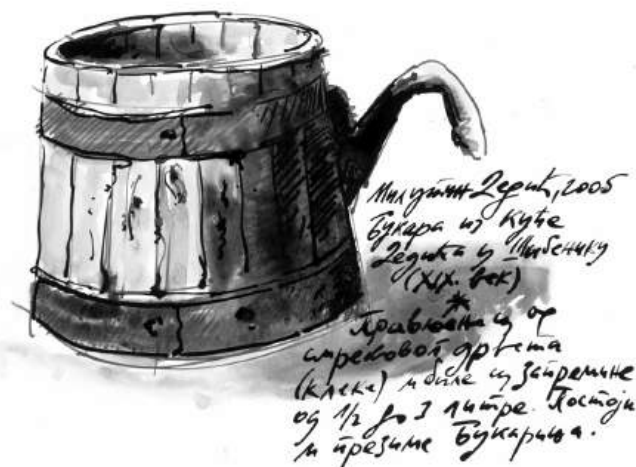 Милутин Дедић, 2005
Букара из куће
Дедића у Шибенику
(XIX. век)
*
Прављени су од
смрековог дрвета
(клека) и биле су запремине
од 1/2 до 3 литре. Постоји
и презиме Букарица.